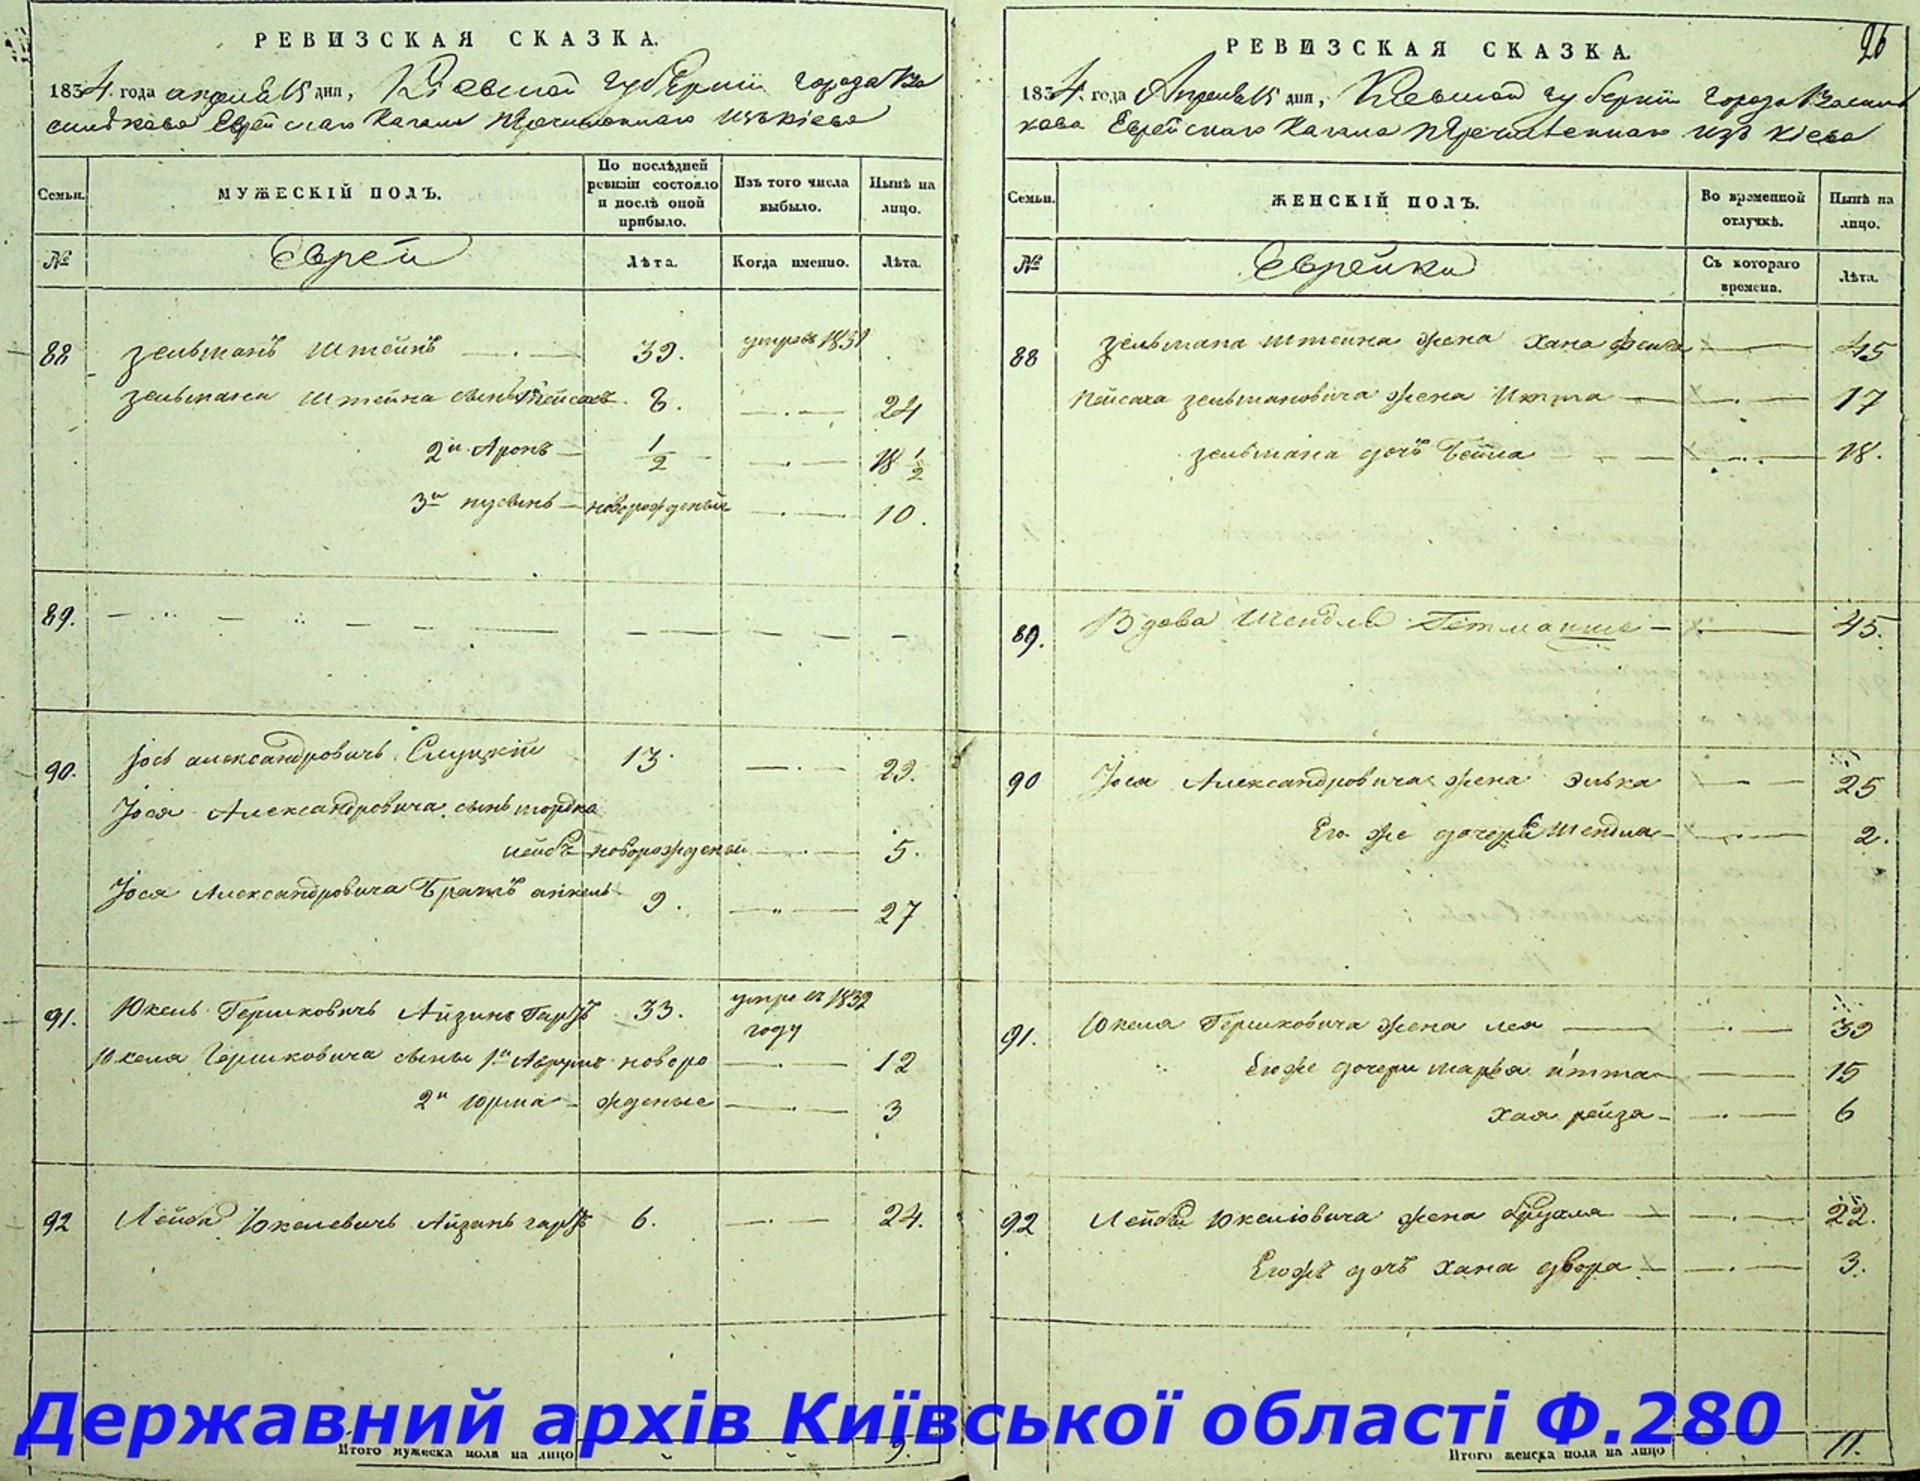 РЕВИЗСКАЯ СКАЗКА.
1834 года апреля 15 дня, Киевской губернии города Ва
силькова Еврейскаго Кагала изъ Кіева
Семьи.
МУЖЕСКІЙ ПОЛЪ.
По послѣдней ревизіи состояло и послѣ оной прибыло.
Изъ того числа выбыло.
Нынѣ на лицо.
№
Еврей
Лѣта.
Когда именно.
Лѣта.
88 Зельманъ Штейнъ 39. 1831
Зельмана Штейна сынъ Пейсахъ 8. 24
2й Аронъ ½ 18 ½
3й новорожденый 10.
89.
90. Іось Александровичъ Слуцкій 13. 29.
Іося Александровича сынъ мордко
лейбъ новорожденый 5.
Іося Александровича Братъ 9. 27
91. Юкель Гершковичъ 33. 1832
году
Юкеля Гершковича сыны 1й новоро 12
2й жденые 3
92 Лейба Юкелевичъ 6. 24.
Итого мужеска пола на лицо 9.
26
РЕВИЗСКАЯ СКАЗКА.
1834 года Апреля 15 дня, Киевской губерніи города Василь
кова Еврейскаго Кагала изъ Кіева
Семьи.
ЖЕНСКІЙ ПОЛЪ.
Во временной отлучкѣ.
Нынѣ на лицо.
№
Еврейки
Съ котораго времена.
Лѣта.
88 Зельмана Штейна жена Хана Фейга 45
Пейсаха Зельмановича жена 17
Зельмана дочь Бейла 18.
89. Вдова Шендля 45.
90 Іося Александровича жена Элька 25
Его же дочерь Шендля 2.
91. Юкеля Гершковича жена лея 39
Егоже дочери марья 15
хая рейза 6
92 Лейбы Юкелевича жена 22.
Егоже дочь хана двора 3.
Итого женска пола на лицо 11.
Державний архів Київської області Ф.280